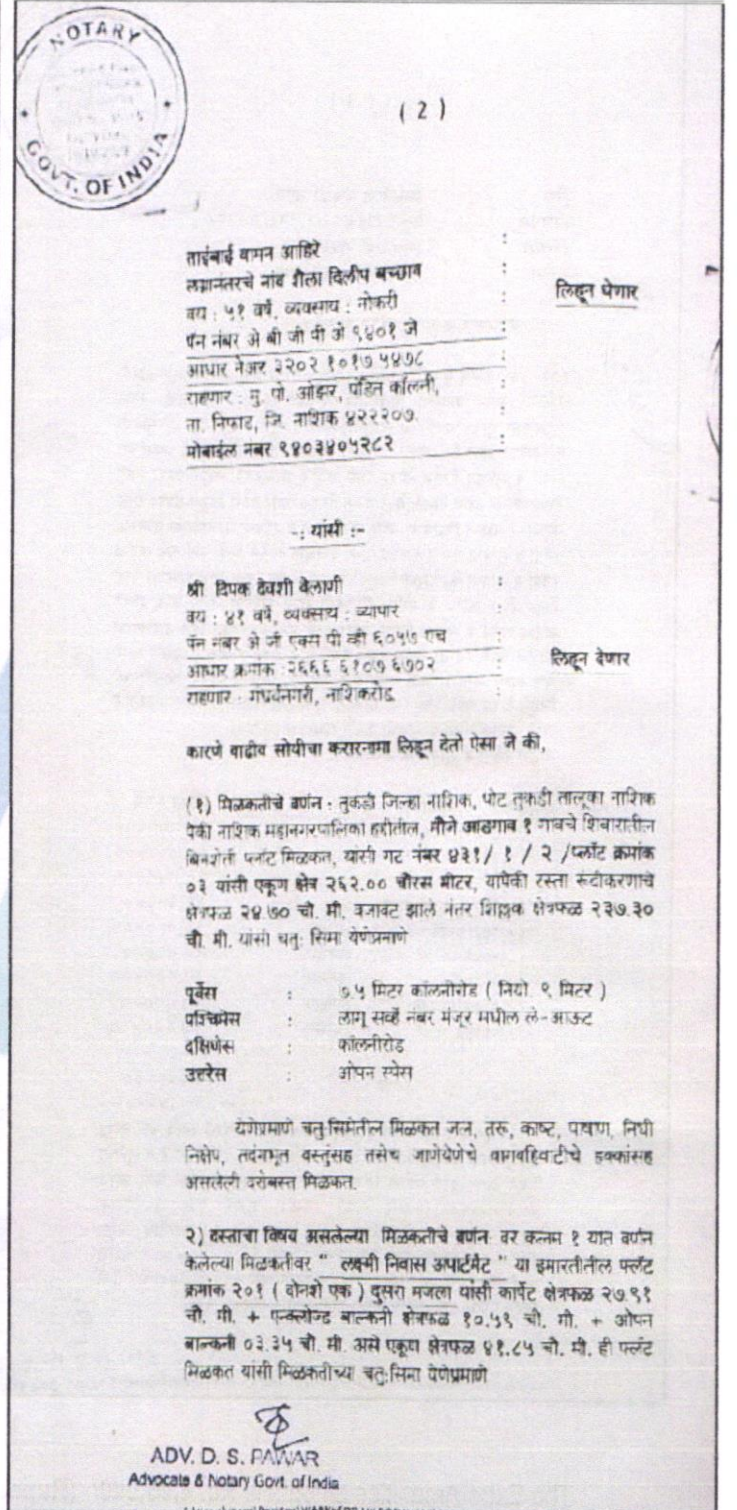 NOTARY
GOVT. OF INDIA
( 2 )
ताईबाई वामन आहिरे :
लग्नानंतरचे नांव शैला दिलीप बच्छाव :
वय : ५१ वर्षे, व्यवसाय : नोकरी : लिहून घेणार
पॅन नंबर अे बी जी पी अे ९४०१ जे :
आधार नंबर ३२०२ १०१७ ५४७८ :
राहणार : मु. पो. ओझर, पंडित कॉलनी, :
ता. निफाड, जि. नाशिक ४२२२०७. :
मोबाईल नंबर ९४०३४०५२८२ :
-: यांसी :-
श्री दिपक देवशी वेलाणी :
वय : ४१ वर्षे, व्यवसाय : व्यापार :
पॅन नंबर अे जी एक्स पी व्ही ६०५७ एच :
आधार क्रमांक : २६६६ ६१०७ ६७०२ : लिहून देणार
राहणार : गंधर्वनगरी, नाशिकरोड :
कारणे वाढीव सोयीचा करारनामा लिहून देतो ऐसा जे की,
(१) मिळकतीचे वर्णन : तुकडी जिल्हा नाशिक, पोट तुकडी तालूका नाशिक
पैकी नाशिक महानगरपालिका हद्दीतील, मौजे आडगाव १ गावचे शिवारातील
बिनशेती प्लॉट मिळकत, यांसी गट नंबर ४३१/ १ / २ /प्लॉट क्रमांक
०३ यांसी एकूण क्षेत्र २६२.०० चौरस मीटर, यापैकी रस्ता रूंदीकरणाचे
क्षेत्रफळ २४.७० चौ. मी. वजावट झाले नंतर शिल्लक क्षेत्रफळ २३७.३०
चौ. मी. यांसी चतु: सिमा येणेप्रमाणे
पूर्वेस : ७.५ मिटर कॉलनीरोड ( नियो. ९ मिटर )
पश्चिमेस : लागू सर्व्हे नंबर मंजूर मधील ले-आऊट
दक्षिणेस : कॉलनीरोड
उत्तरेस : ओपन स्पेस
येणेप्रमाणे चतु:सिमेतील मिळकत जल, तरु, काष्ट, पाषाण, निधी
निक्षेप, तदंगभूत वस्तुंसह तसेच जाणेयेणेचे वागवहिवाटीचे हक्कांसह
असलेली दरोबस्त मिळकत.
२) दस्ताचा विषय असलेल्या मिळकतीचे वर्णन वर कलम १ यांत वर्णन
केलेल्या मिळकतीवर " लक्ष्मी निवास अपार्टमेंट " या इमारतीतील फ्लॅट
क्रमांक २०१ ( दोनशे एक ) दुसरा मजला यांसी कार्पेट क्षेत्रफळ २७.९१
चौ. मी. + एन्क्लोज्ड बाल्कनी क्षेत्रफळ १०.५९ चौ. मी. + ओपन
बाल्कनी ०३.३५ चौ. मी. असे एकूण क्षेत्रफळ ४१.८५ चौ. मी. ही फ्लॅट
मिळकत यांसी मिळकतीच्या चतु:सिमा येणेप्रमाणे
ADV. D. S. PAWAR
Advocate & Notary Govt. of India